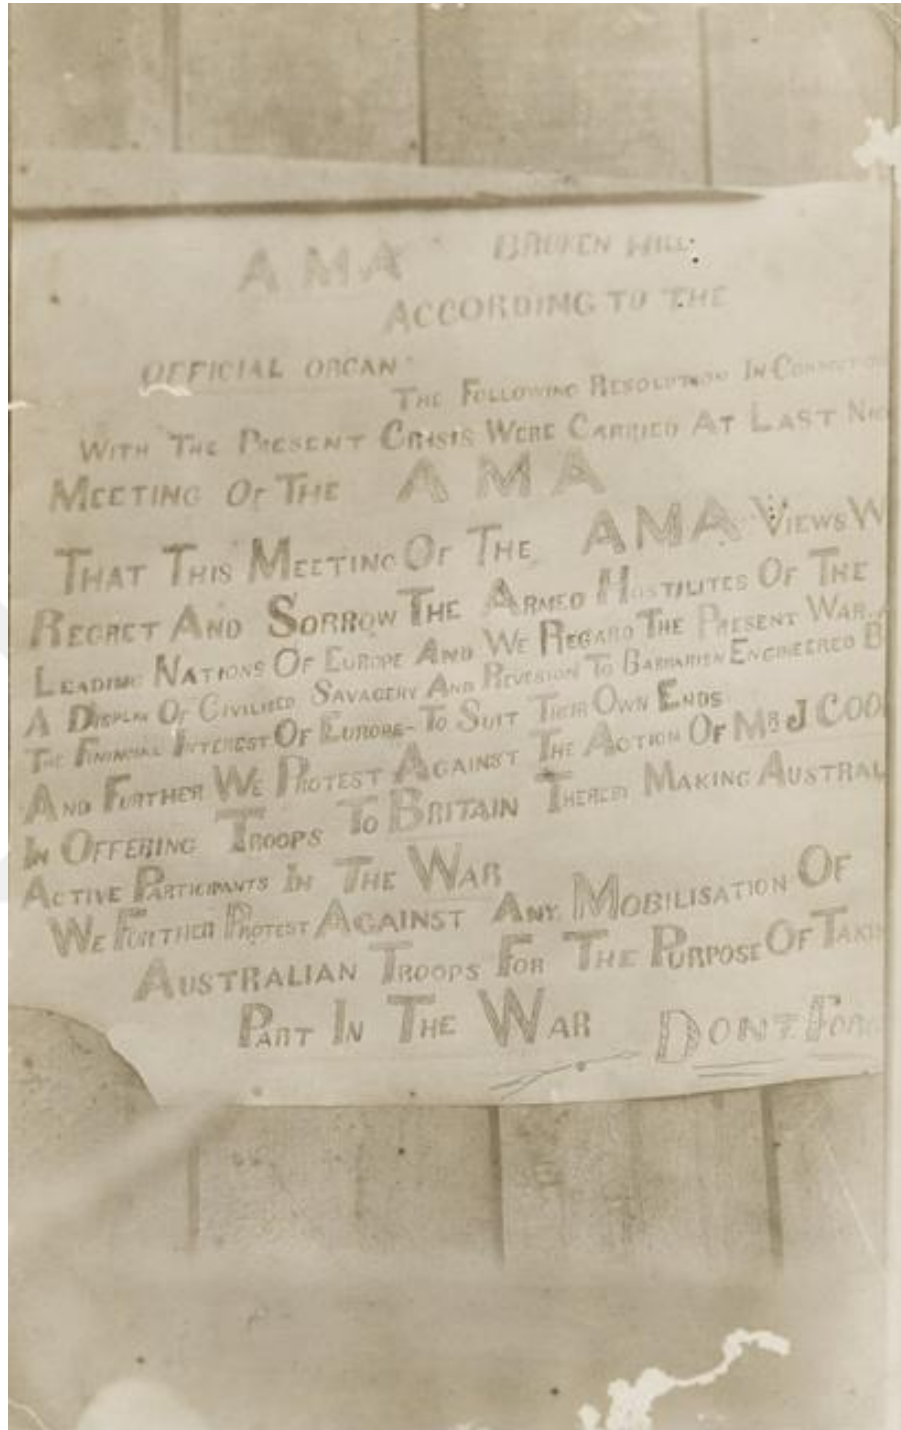 AMA BROKEN HILL
ACCORDING TO THE
OFFICIAL ORGAN
THE FOLLOWING RESOLUTION IN
WITH THE PRESENT CRISIS WERE CARRIED AT LAST
MEETING OF THE AMA
THAT THIS MEETING OF THE AMA VIEWS
REGRET AND SORROW THE ARMED HOSTILITES OF THE
LEADING NATIONS OF EUROPE AND WE REGARD THE PRESENT WAR
A DISPLAY OF CIVILISED SAVAGERY AND REVERSION TO BARBARIEN ENGINEERED
THE FININCIAL INTEREST OF EUROPE - TO SUIT THEIR OWN ENDS
AND FURTHER WE PROTEST AGAINST THE ACTION OF MR J
IN OFFERING TROOPS TO BRITAIN THEREBY MAKING
ACTIVE PARTICIPANTS IN THE WAR
WE FURTHER PROTEST AGAINST ANY MOBILISATION OF
AUSTRALIAN TROOPS FOR THE PURPOSE OF
PART IN THE WAR DONT